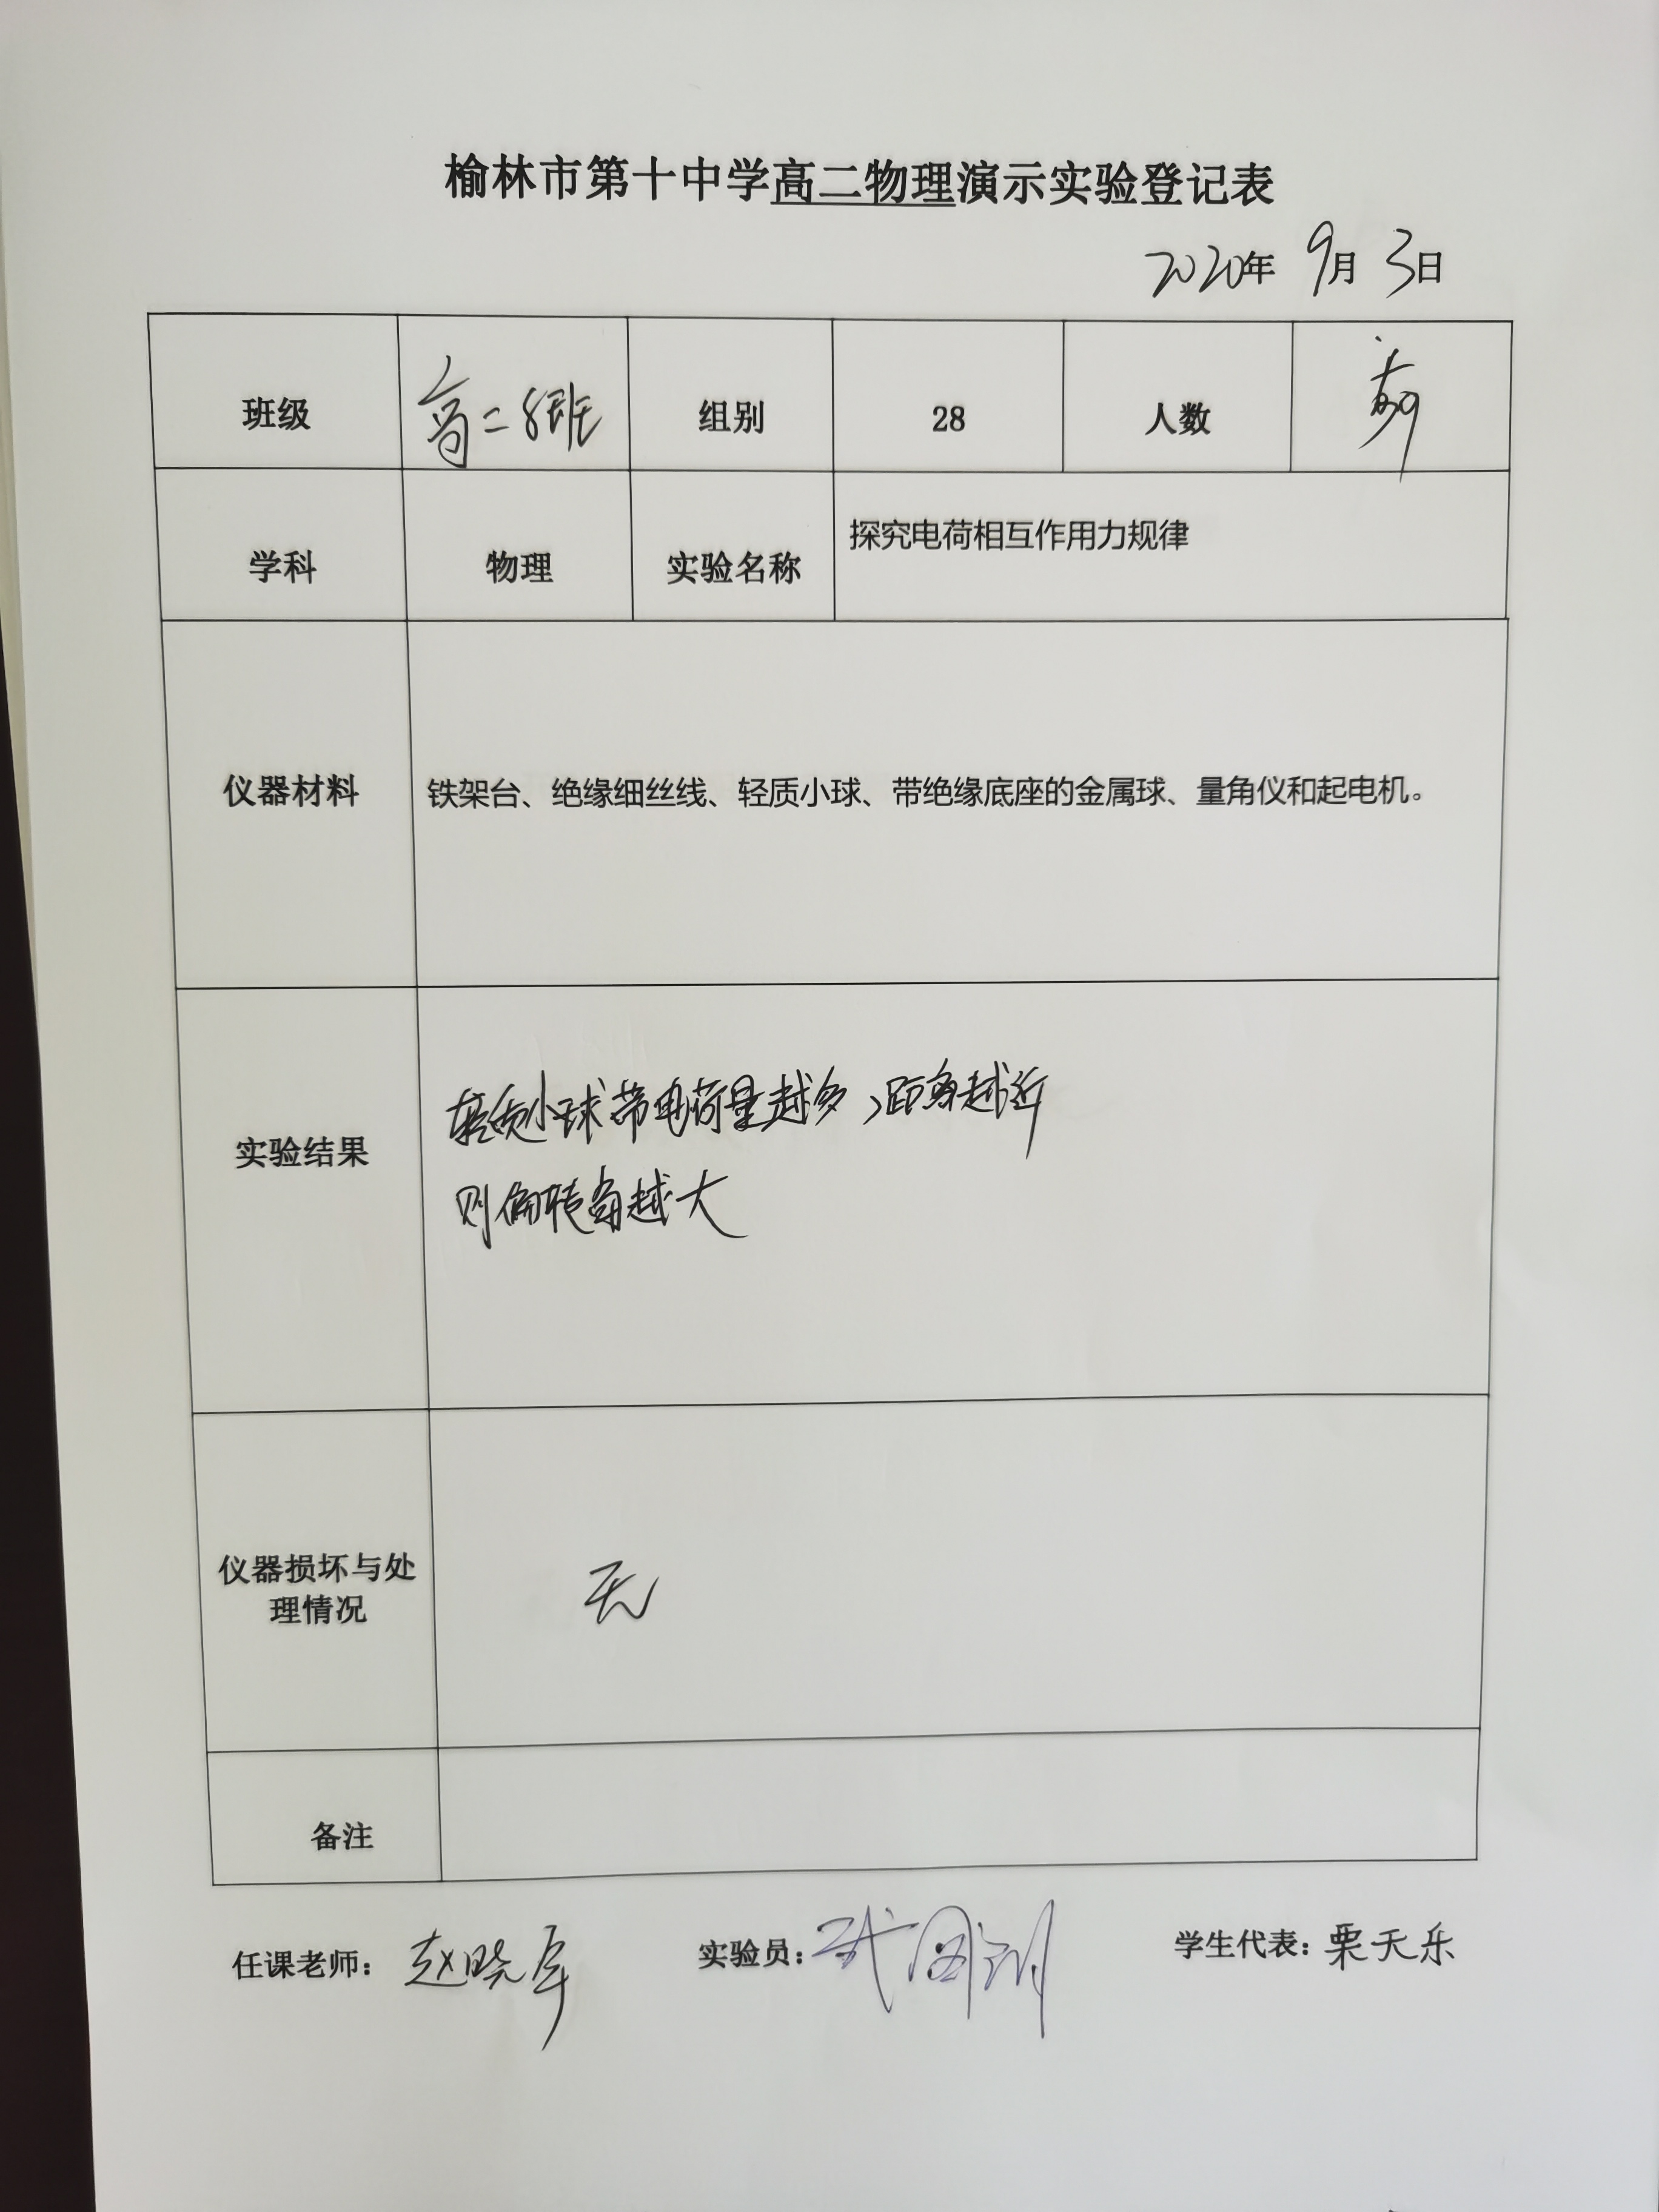 榆林市第十中学高二物理演示实验登记表
2020年 9月 3日
班级 高二8班 组别 28 人数
学科 物理 实验名称 探究电荷相互作用力规律
仪器材料 铁架台、绝缘细丝线、轻质小球、带绝缘底座的金属球、量角仪和起电机。
实验结果
轻质小球带电荷量越多，距离越近
则偏转角越大
仪器损坏与处
理情况
无
备注
任课老师：赵晓军 实验员：武 学生代表：栗天乐